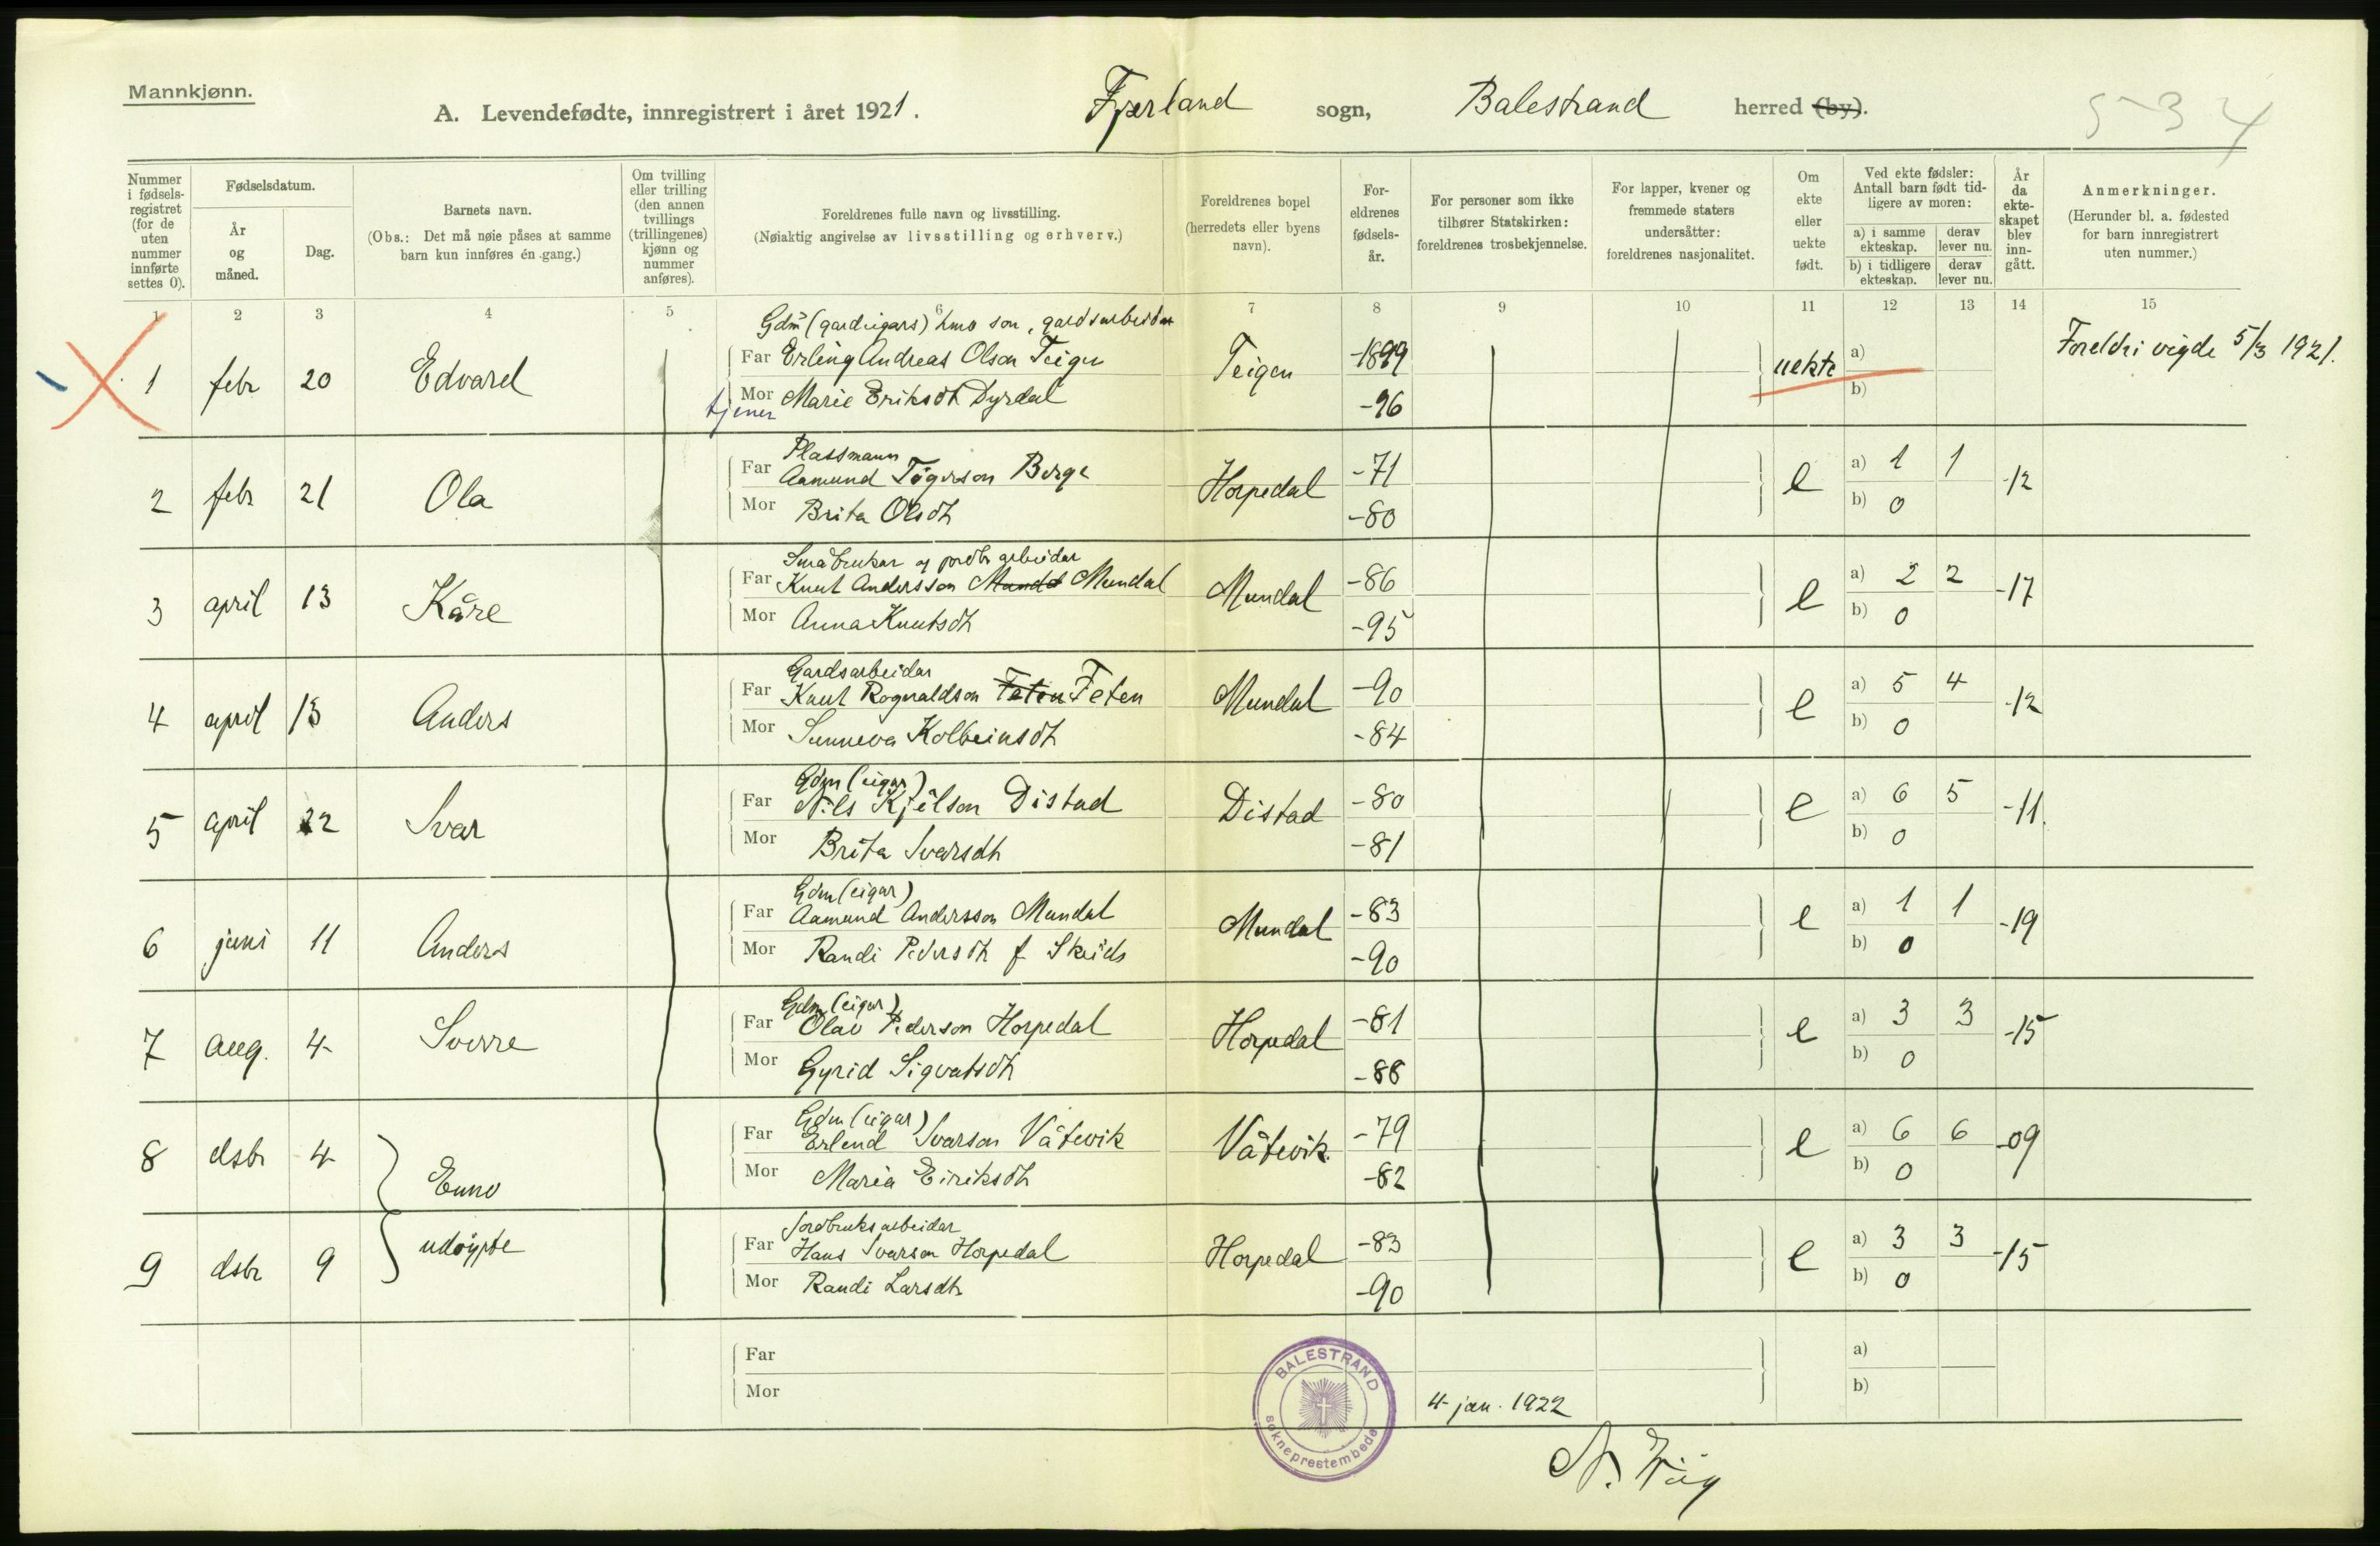 Mannkjønn.
A. Levendefødte, innregistrert i året 1921. Fjærland sogn, Balestrand herred (by).
5-34
Nummer i fødsels-registret (for de uten nummer innførte settes 0).
Fødselsdatum.
År og måned.
Dag.
Barnets navn.
(Obs.: Det må nøie påses at samme barn kun innføres én gang.)
Om tvilling eller trilling (den annen tvillings (trillingenes) kjønn og nummer anføres).
Foreldrenes fulle navn og livsstilling.
(Nøiaktig angivelse av livsstilling og erhverv.)
Foreldrenes bopel (herredets eller byens navn).
For-eldrenes fødsels-år.
For personer som ikke tilhører Statskirken: foreldrenes trosbekjennelse.
For lapper, kvener og fremmede staters undersåtter: foreldrenes nasjonalitet.
Om ekte eller uekte født.
Ved ekte fødsler: Antall barn født tid-ligere av moren:
a) i samme ekteskap.
derav lever nu.
b) i tidligere ekteskap.
derav lever nu.
År da ekte-skapet blev inn-gått.
Anmerkninger.
(Herunder bl. a. fødested for barn innregistrert uten nummer.)
1 2 3 4 5 6 7 8 9 10 11 12 13 14 15
Gdm (gardeigars) son, gardsarbeidar
1 febr 20 Edvard Far Erling Andreas Olson Teigen Teigen -1899 uekte a) Foreldri vigde 5/3 1921.
tjener Mor Marie Eriksdt Dyrdal -96 b)
Plassmann
2 febr 21 Ola Far Aamund Tögerson Berge Horpedal -71 e a) 1 1 -12
Mor Brita Olsdt -80 b) 0
Småbrukar og jordbr arbeidar
3 april 13 Kåre Far Knut Andersson Mundal Mundal -86 e a) 2 2 -17
Mor Anna Knutsdt -95 b) 0
Gardsarbeidar
4 april 13 Anders Far Knut Rognaldson Feten Feten Mundal -90 e a) 5 4 -12
Mor Sunneva Kolbeinsdt -84 b) 0
Gdm (eigar)
5 april 22 Ivar Far Nils Kjelson Distad Distad -80 e a) 6 5 -11.
Mor Brita Ivarsdt -81 b) 0
Gdm (eigar)
6 juni 11 Anders Far Aamund Andersson Mundal Mundal -83 e a) 1 1 -19
Mor Randi Pedersdt f Skeids -90 b) 0
Gdm (eigar)
7 aug. 4 Sverre Far Olav Pederson Horpedal Horpedal -81 e a) 3 3 -15
Mor Gyrid Sigvatsdt -88 b) 0
Gdm (eigar)
8 dsbr 4 Enno Far Erlend Ivarson Våtevik Våtevik -79 e a) 6 6 -09
Mor Maria Eiriksdt -82 b) 0
Jordbruksarbeidar
9 dsbr 9 udøypte Far Hans Ivarson Horpedal Horpedal -83 e a) 3 3 -15
Mor Randi Larsdt -90 b) 0
Far a)
Mor b)
BALESTRAND
sokneprestembede
4 jan. 1922